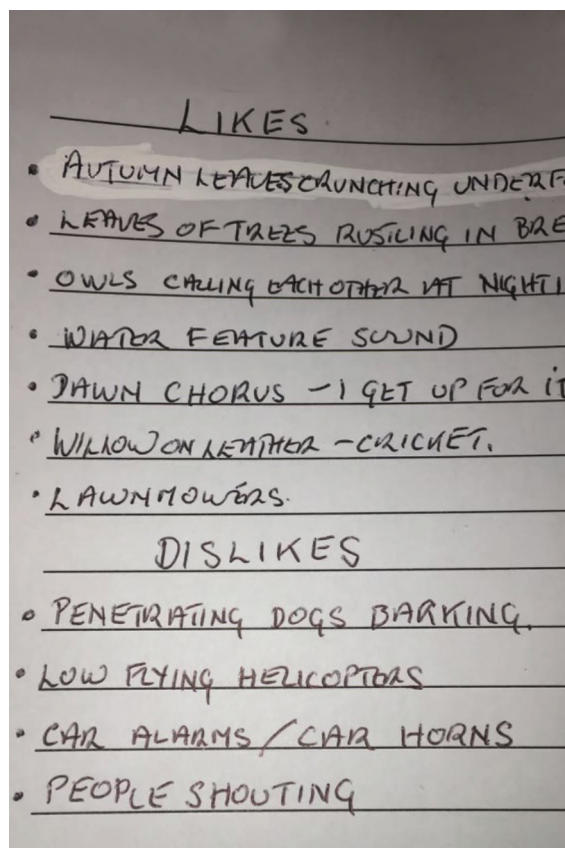 LIKES
• AUTUMN LEAVES CRUNCHING UNDERF
• LEAVES OF TREES RUSILING IN BRE
• OWLS CALLING EACH OTHER AT NIGHT
• WATER FEATURE SOUND
• DAWN CHORUS – I GET UP FOR IT
• WILLOW ON LEATHER – CRICKET.
• LAWNMOWERS.
DISLIKES
• PENETRATING DOGS BARKING.
• LOW FLYING HELICOPTORS
• CAR ALARMS / CAR HORNS
• PEOPLE SHOUTING